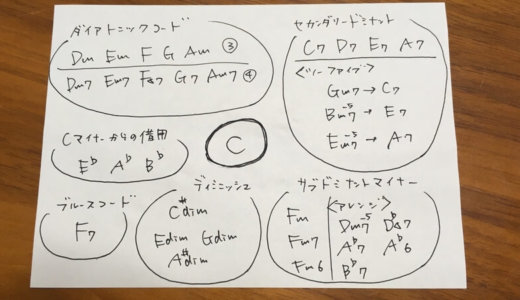 ダイアトニックコード
Dm Em F G Am ③
Dm7 Em7 F△7 G7 Am7 ④
セカンダリードミナント
C7 D7 E7 A7
<ツーファイブ>
Gm7→C7
Bm7-5→E7
Em7-5→A7
Cマイナーからの借用
E♭ A♭ B♭
C
ブルースコード
F7
ディミニッシュ
C#dim
Edim Gdim
A#dim
サブドミナントマイナー
<アレンジ>
Fm Dm7-5 D♭7
Fm7 A♭7 A♭6
Fm6 B♭7